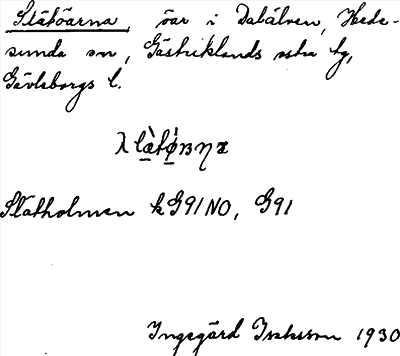 Slätöarna, öar i Dalälven, Hede-
sunda sn, Gästriklands östra tg,
Gävleborgs l.
Slätholmen k G91NO, G91
Ingegärd Isaksson 1930